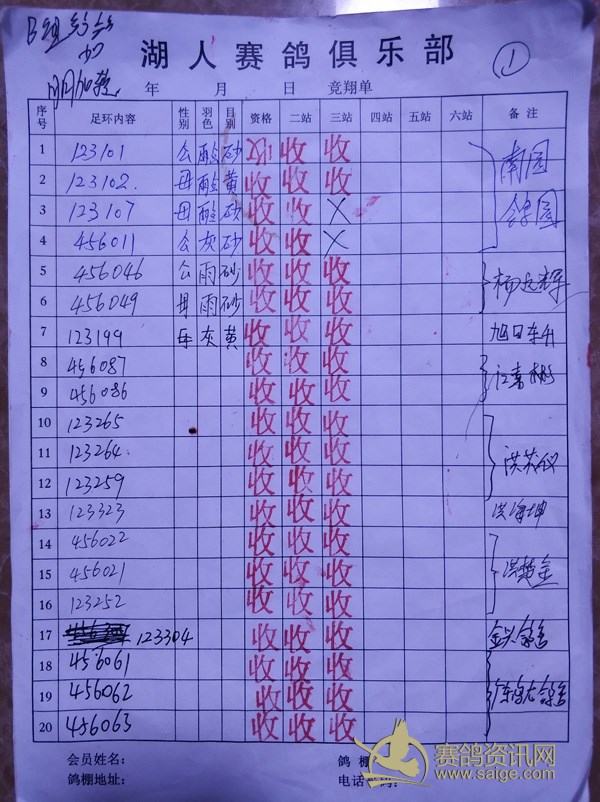 湖人赛鸽俱乐部
①
年 月 日 竞翔单
序号 足环内容 性别 羽色 目别 资格 二站 三站 四站 五站 六站 备注
1 123101 公 砂 收 收
2 123102. 母 黄 收 收 收
3 123107 母 砂 收 收 X
4 456011 公 灰 砂 收 收 X
南园
5 456046 公 雨 砂 收 收 收
6 456049 母 雨 砂 收 收 收
7 123199 母 灰 黄 收 收 收
8 456087 收 收 收
9 456086 收 收 收
10 123265 收 收 收
11 123264 收 收 收
12 123259 收 收 收
13 123323 收 收 收 洪海坤
14 456022 收 收 收
15 456021 收 收 收
16 123252 收 收 收
17 123304 收 收 收
18 456061 收 收 收
19 456062 收 收 收
20 456063 收 收 收
会员姓名: 鸽棚
鸽棚地址: 电话号码:
赛鸽资讯网
www.saige.com